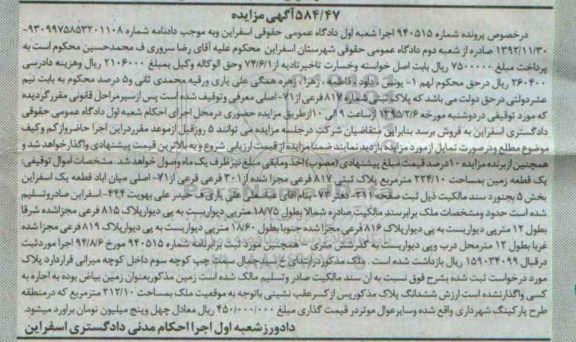 ۵۸۴/۴۷ آگهی مزایده
درخصوص پرونده شماره ۹۴۰۵۱۵ اجرا شعبه اول دادگاه عمومی حقوقی اسفراین وبه موجب دادنامه شماره ۹۳۰۹۹۷۵۸۵۳۲۰۱۱۰۸-
۱۳۹۲/۱۱/۳۰ صادره از شعبه دوم دادگاه عمومی حقوقی شهرستان اسفراین محکوم علیه آقای رضا سروری ف محمدحسین محکوم است به
پرداخت مبلغ ۷۵۰۰۰۰۰ ریال بابت اصل خواسته وخسارت تاخیرتادیه از ۷۴/۶/۱ وحق الوکاله وکیل بمبلغ ۲۱۰۶۰۰۰ ریال وهزینه دادرسی
۲۶۰۴۰۰ ریال درحق محکوم لهم ۱- یونس، داود، فاطمه، زهرا، زهره همگی علی یاری ورقیه محمدی ثانی و۵ درصد محکوم به بابت نیم
عشردولتی درحق دولت می باشد که پلاک ثبتی شماره ۸۱۷ فرعی از ۷۱- اصلی معرفی وتوقیف شده است پس ازسیرمراحل قانونی مقرر گردیده
که مورد توقیفی دردوشنبه مورخه ۱۳۹۵/۲/۶ ازساعت ۹ الی ۱۰ ازطریق مزایده حضوری درمحل اجرای احکام شعبه اول دادگاه عمومی حقوقی
دادگستری اسفراین به فروش برسد بنابراین متقاضیان شرکت درجلسه مزایده می توانند ۵ روزقبل ازموعد مقرردراین اجرا حاضرواز کم وکیف
موضوع مطلع ودرصورت تمایل ازمورد مزایده بازدید نمایند ضمنا مزایده از قیمت ارزیابی شروع و به بالاترین قیمت پیشنهادی واگذار خواهد شد و
همچنین ازبرنده مزایده ۱۰ درصد قیمت مبلغ پیشنهادی (مصوب) اخذ ومابقی مبلغ نیزظرف یک ماه وصول خواهد شد. مشخصات اموال توقیفی:
یک قطعه زمین بمساحت ۲۲۴/۱۰ مترمربع پلاک ثبتی ۸۱۷ فرعی مجزا شده از ۳۰۱ فرعی از ۷۱- اصلی میان اباد قطعه یک اسفراین
بخش ۵ بجنورد سند مالکیت ذیل ثبت صفحه ۲۹۱ دفتر ۷۴ بنام آقای عباسعلی علی یاری ف حیدر علی بهویت ۴۴۴- اسفراین صادروتسلیم
شده است حدود ومشخصات ملک برابرسند مالکیت صادره شمالا بطول ۱۸/۷۵ مترپی دیواریست به پی دیوارپلاک ۸۱۵ فرعی مجزاشده شرقا
بطول ۱۲ مترپی دیواریست به پی دیوارپلاک ۸۱۶ فرعی مجزا شده جنوبا بطول ۱۸/۶۰ مترپی دیواریست به پی دیوارپلاک ۸۱۹ فرعی مجزا شده
غربا بطول ۱۲ مترمحل درب وپی دیواریست به گذرشش متری – همچنین مورد ثبت برابرنامه شماره ۹۴۰۵۱۵ مورخ ۹۴/۸/۶ اجرا موردثبت
درقبال ۱۵۹۰۳۴۰۹۹ ریال بازداشت شده است. ملک مذکوردرانتهای خ سیدجمال سمت چپ کوچه سوم داخل کوچه میرانی قراردارد پلاک
مورد درخواست ثبت شده بشرح فوق نسبت به ان سند مالکیت صادر وتسلیم مالک شده است زمین مذکوربعنوان زمین بیاض بوده به اجاره به
کسی واگذارنشده است ارزش ششدانگ پلاک مذکورپس از کسرعقب نشینی باتوجه به موقعیت ملک بمساحت ۲۱۲/۱۰ مترمربع که درمنطقه
طرح پارکینگ شهرداری واقع شده وسایرعوال موثردر قیمت گذاری مبلغ ۴۵۰/۰۰۰/۰۰۰ ریال معادل چهل وپنج میلیون تومان براورد میشود.
دادورزشعبه اول اجرا احکام مدنی دادگستری اسفراین